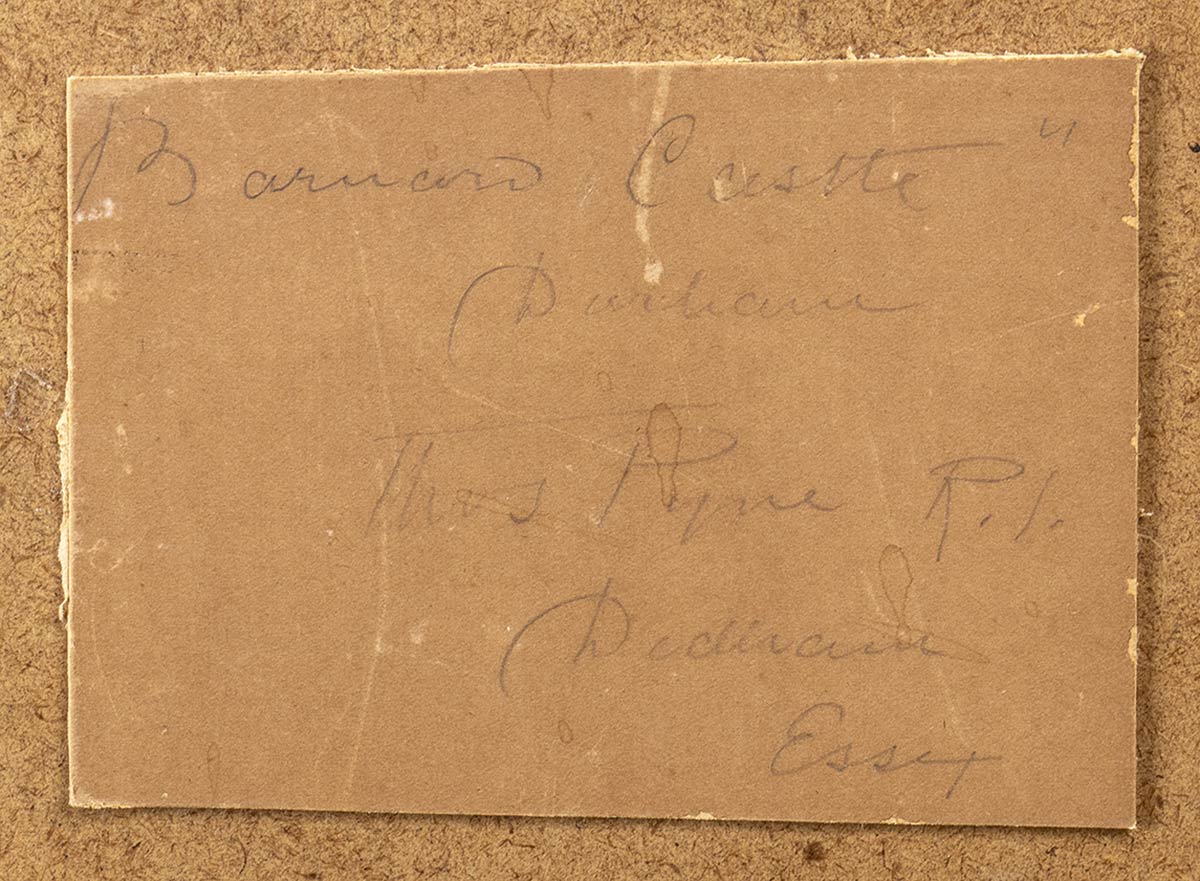 Barnard Castle"
Durham
Thos Pyne R.I.
Dedham
Essex